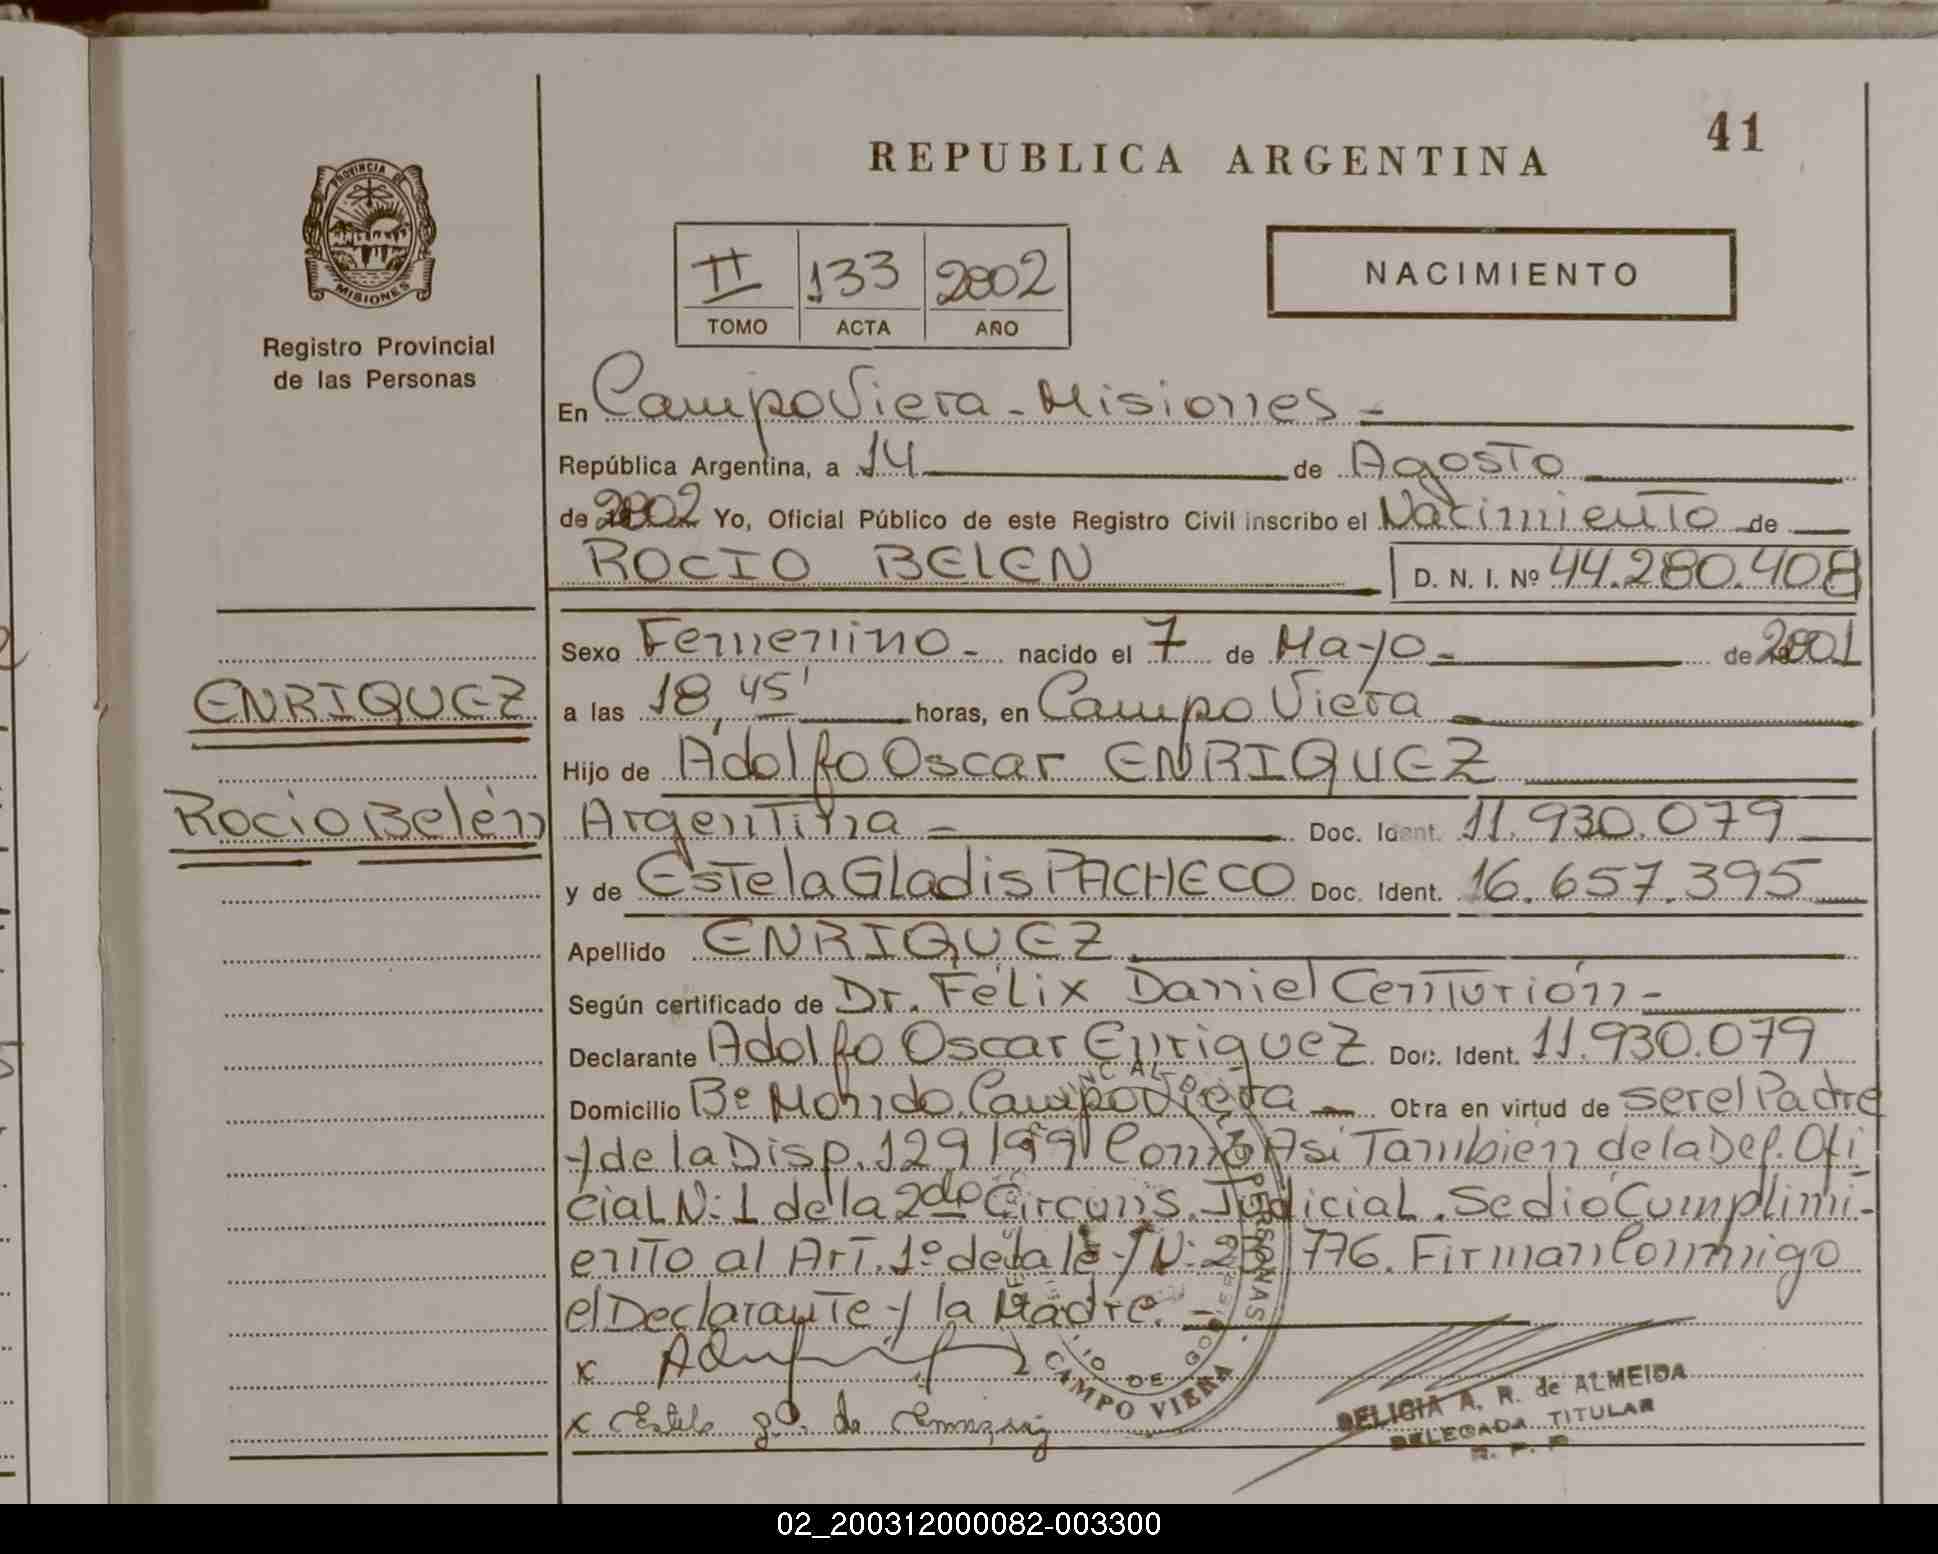 41
REPUBLICA ARGENTINA
PROVINCIA DE
MISIONES
Registro Provincial
de las Personas
II 133 2002
TOMO ACTA AÑO
NACIMIENTO
En Campo Viera - Misiones -
República Argentina, a 14 de Agosto
de 2002 Yo, Oficial Público de este Registro Civil inscribo el Nacimiento de
ROCIO BELEN D. N. I. Nº 44.280.408
Sexo Femenino - nacido el 7 de Mayo - de 2001
ENRIQUEZ
a las 18,45' horas, en Campo Viera
Hijo de Adolfo Oscar ENRIQUEZ
Rocio Belén
Argentina - Doc. Ident. 11.930.079
y de Estela Gladis PACHECO Doc. Ident. 16.657.395
Apellido ENRIQUEZ
Según certificado de Dr. Félix Daniel Centurión -
Declarante Adolfo Oscar Enriquez Doc. Ident. 11.930.079
Domicilio Bº Mondo. Campo Viera - Obra en virtud de ser el Padre
y de la Disp. 129/99 Como Asi También de la Def. Ofi
cial N: 1 de la 2da Circuns. Judicial. Se dió Cumplimi-
ento al Art. 1º de la ley N: 776. Firman Conmigo
el Declarante y la Madre. -
x
x Estela
PERSONAS
DE GOBIERNO
CAMPO VIERA
DELICIA A. R. de ALMEIDA
DELEGADA TITULAR
R. P. P.
02_200312000082-003300